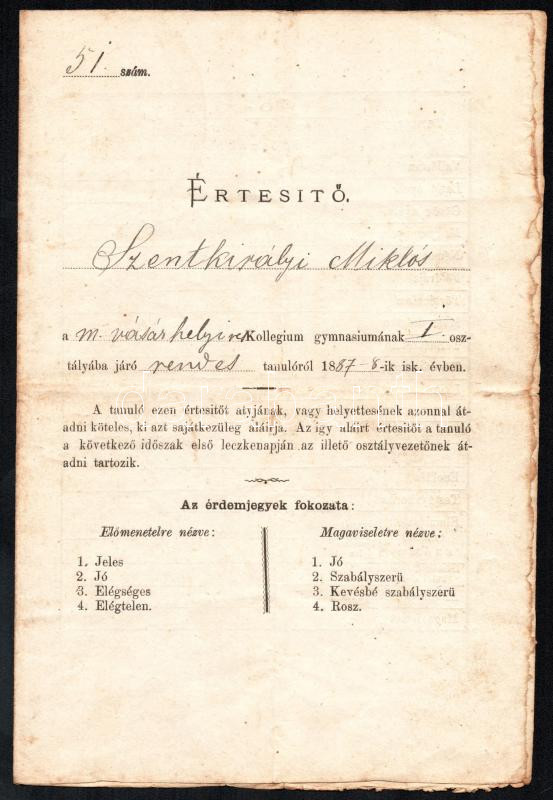 51. szám.
ÉRTESITŐ.
Szentkirályi Miklós
a m. vásárhelyi ref. Kollegium gymnasiumának I. osz-
tályába járó rendes tanulóról 1887-8-ik isk. évben.
A tanuló ezen értesitőt atyjának, vagy helyettesének azonnal át-
adni köteles, ki azt sajátkezüleg aláirja. Az igy aláirt értesitőt a tanuló
a következő időszak első leczkenapján az illető osztályvezetőnek át-
adni tartozik.
Az érdemjegyek fokozata:
Előmenetelre nézve:
1. Jeles
2. Jó
3. Elégséges
4. Elégtelen.
Magaviseletre nézve:
1. Jó
2. Szabályszerü
3. Kevésbé szabályszerü
4. Rosz.